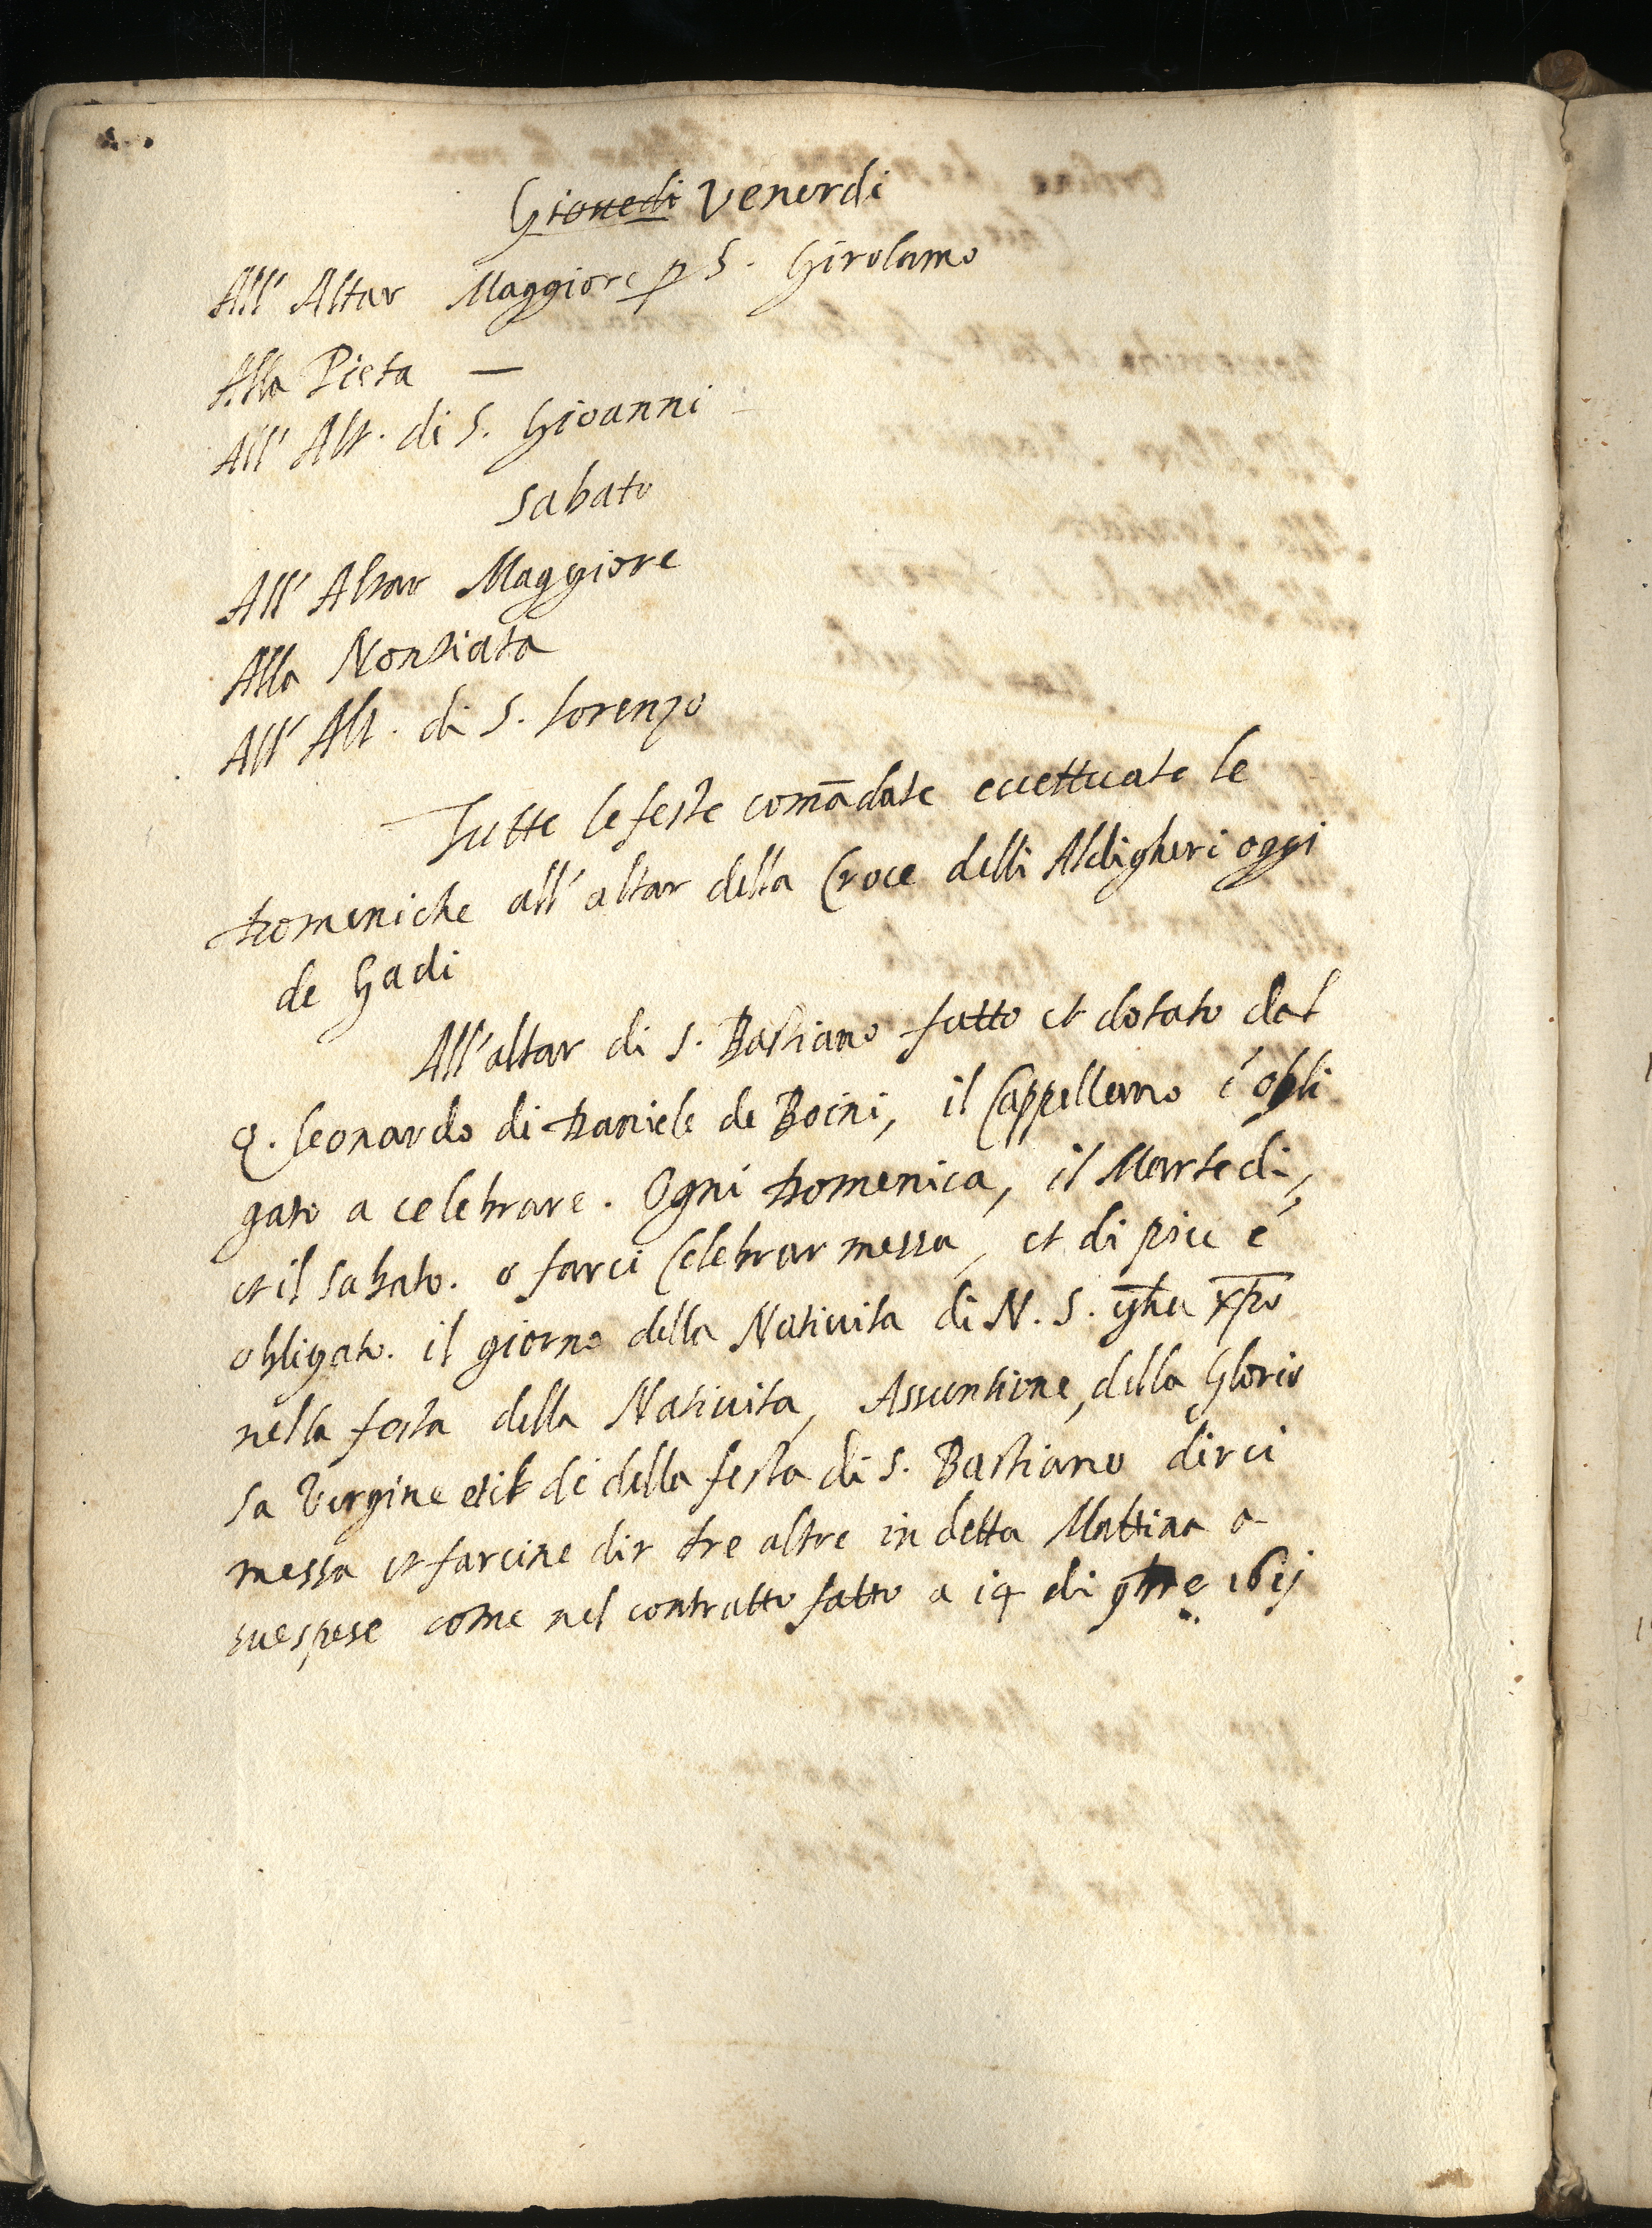 Giouedi Venerdi
All' Altar Maggiore p S. Girolamo
Alla Pieta —
All' Alt. di S. Gioanni
Sabato
All' Altar Maggiore
Alla Nontiata
All' Alt. di S. Lorenzo
Tutte le feste comādate eccettuate le
Domeniche all' altar della Croce delli Aldigheri oggi
de Gadi
All' altar di S. Bastiano fatto et dotato dal
q. Leonardo di Daniele de Boini, il Cappellano é obli
gato a celebrare. Ogni Domenica, il Martedi,
et il Sabato. o farci Celebrar messa, et di piu é
obligato. il giorno della Natiuita di N. S. xpo
nella festa della Natiuita, Assuntione, della Glorio
sa Vergine et il di della festa di S. Bastiano dirci
messa et farcine dir tre altre in detta Mattina a
sue spese come nel contratto fatto a 14 di 9bre 1611